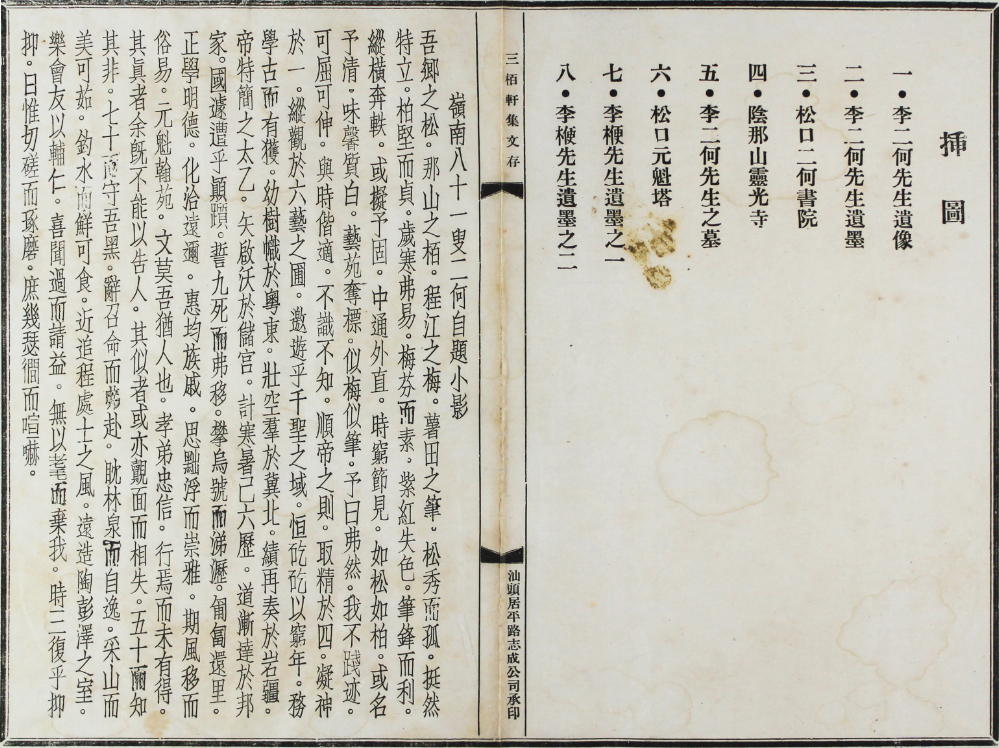 插圖
一・李二何先生遺像
二・李二何先生遺墨
三・松口二何書院
四・陰那山靈光寺
五・李二何先生之墓
六・松口元魁塔
七・李楩先生遺墨之一
八・李楩先生遺墨之二
三栢軒集文存
汕頭居平路志成公司承印
嶺南八十一叟二何自題小影
吾鄉之松。那山之栢。程江之梅。薯田之筆。松秀而孤。挺然
特立。柏堅而貞。歲寒弗易。梅芬而素。紫紅失色。筆鋒而利。
縱橫奔軼。或擬予固。中通外直。時窮節見。如松如柏。或名
予清。味馨質白。藝苑奪標。似梅似筆。予曰弗然。我不踐迹。
可屈可伸。與時偕適。不識不知。順帝之則。取精於四。凝神
於一。縱觀於六藝之圃。遨遊乎千聖之域。恒矻矻以窮年。務
學古而有獲。幼樹幟於粵東。壯空羣於冀北。績再奏於岩疆。
帝特簡之太乙。矢啟沃於儲宫。計寒暑己六歷。道漸達於邦
家。國遽遭乎顛躓。誓九死而弗移。攀烏號而涕瀝。匍匐還里。
正學明德。化洽遠邇。惠均族戚。思黜浮而崇雅。期風移而
俗易。元魁翰苑。文莫吾猶人也。孝弟忠信。行焉而未有得。
其眞者余旣不能以告人。其似者或亦覿面而相失。五十而知
其非。七十而守吾黑。辭召命而弗赴。眈林泉而自逸。采山而
美可茹。釣水而鮮可食。近追程處士之風。遠造陶彭澤之室。
樂會友以輔仁。喜聞過而請益。無以耄而棄我。時三復乎抑
抑。日惟切磋而琢磨。庶幾瑟僩而喧嚇。